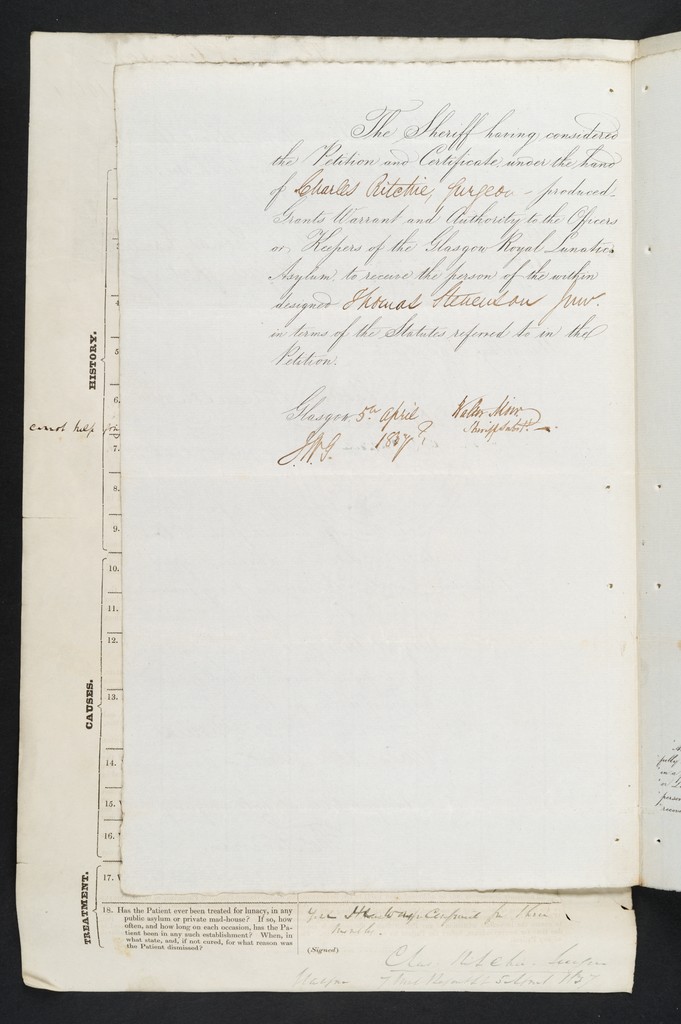 The Sheriff having considered
the Petition and Certificate, under the hand
of Charles Ritchie, Surgeon - produced -
Grants Warrant and Authority to the Officers
or Keepers of the Glasgow Royal Lunatic
Asylum, to receive the person of the within
designed Thomas Stevenson Junr.
in terms of the Statutes referred to in the
Petition.
Glasgow 5th April
1837
HISTORY.
4
5
6.
cannot help
7.
8.
9.
10.
11.
12.
CAUSES.
13.
14.
15.
16.
TREATMENT.
17.
18. Has the Patient ever been treated for lunacy, in any
public asylum or private mad-house? If so, how
often, and how long on each occasion, has the Pa-
tient been in any such establishment? When, in
what state, and, if not cured, for what reason was
the Patient dismissed?
confined for three
months.
(Signed)
Chas Ritchie Surgeon
Glasgow
5 April 1837